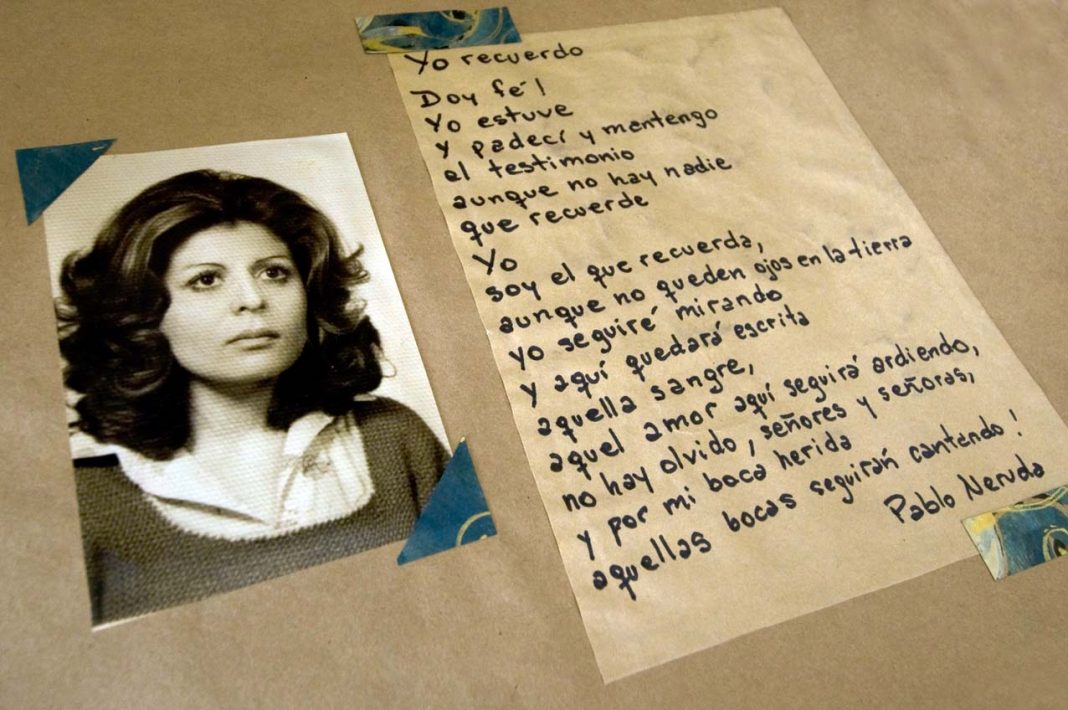 Yo recuerdo
Doy fé!
Yo estuve
y padecí y mantengo
el testimonio
aunque no hay nadie
que recuerde
Yo
soy el que recuerda,
aunque no queden ojos en la tierra
yo seguiré mirando
y aquí quedará escrita
aquella sangre,
aquel amor aquí seguirá ardiendo,
no hay olvido, señores y señoras,
y por mi boca herida
aquellas bocas seguirán cantando!
Pablo Neruda